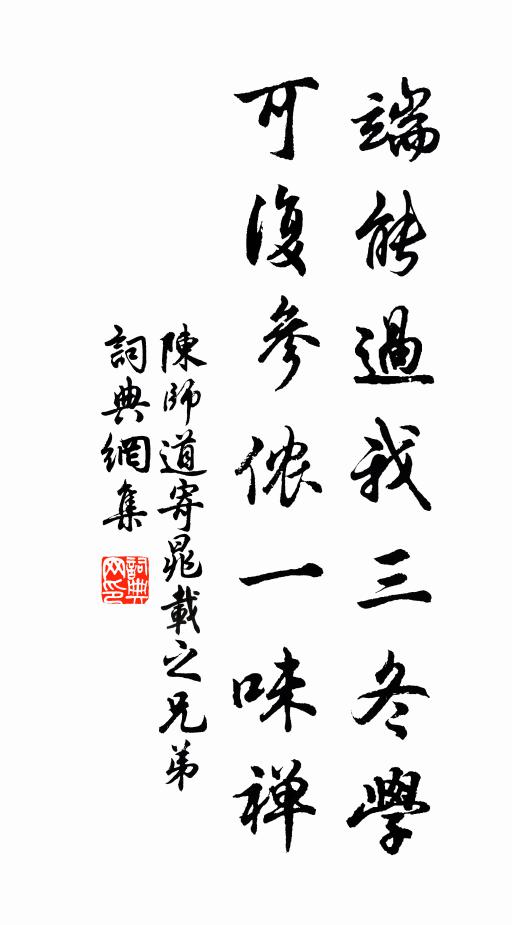 端能過我三冬學
可復參侬一味禅
陳師道寄晁載之兄弟
詞典網集
詞典网印